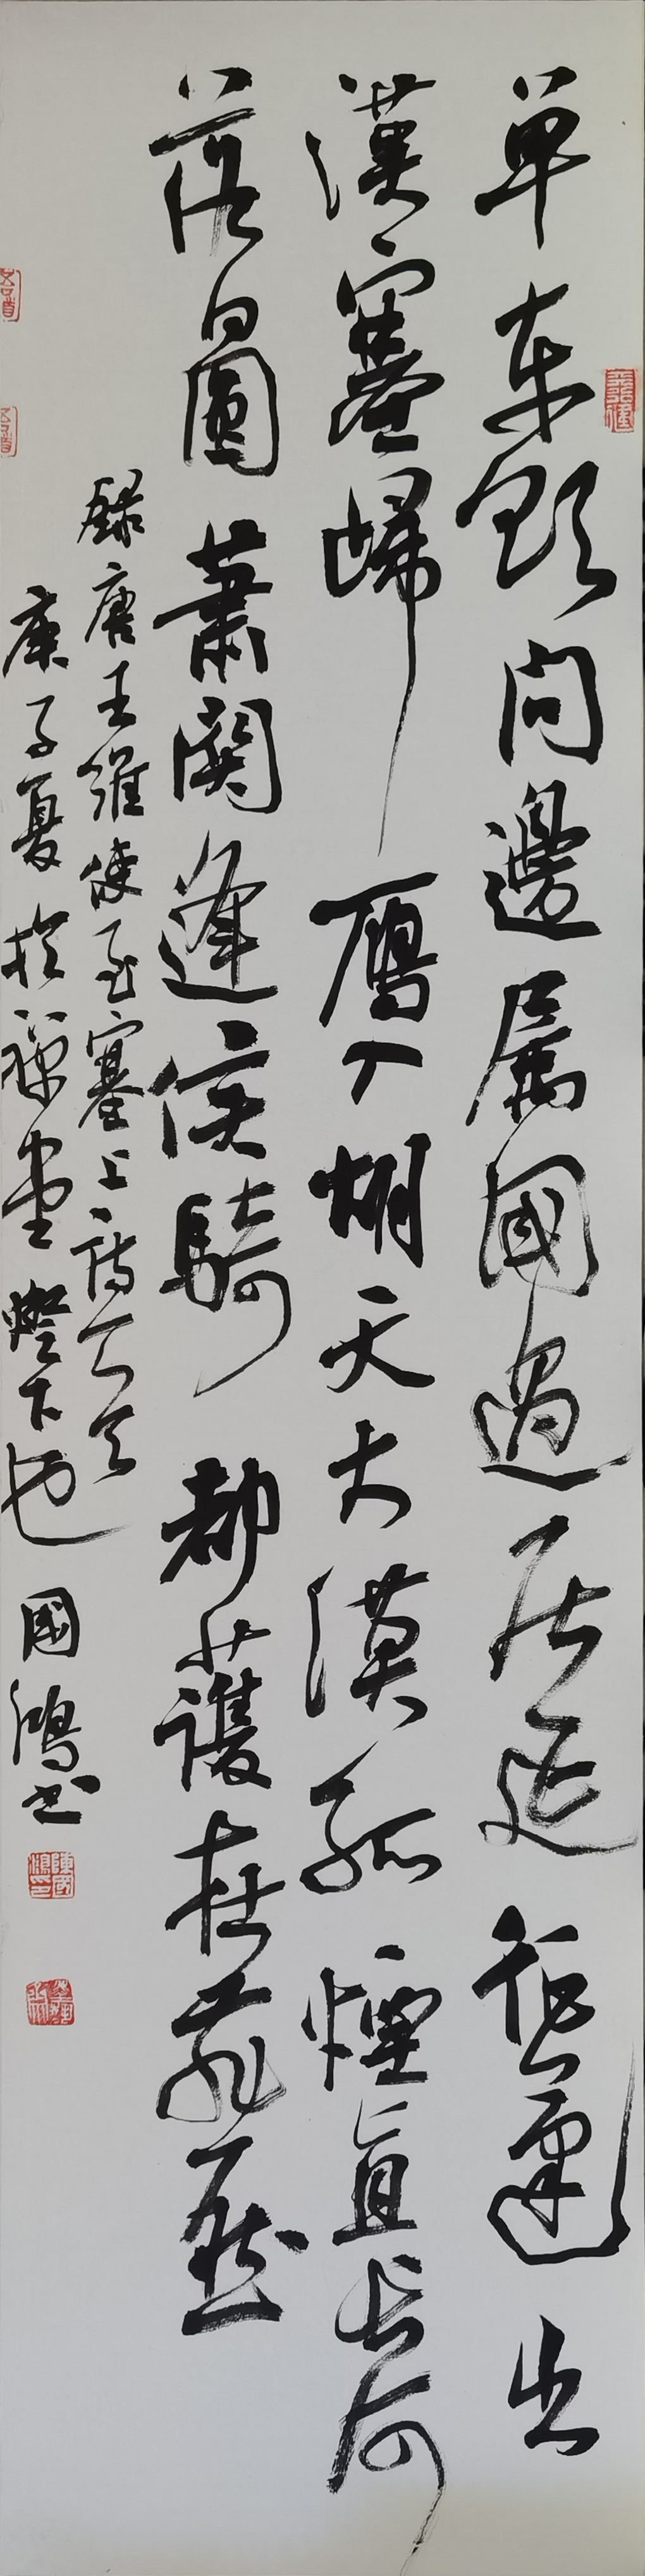 单車欲問邊屬國過居延征蓬出
漢塞歸鴈入胡天大漠孤煙直長河
落日圓蕭關逢候騎都護在燕然
錄唐王維使至塞上詩一首
庚子夏於禪堂燈下也國鴻書
陳國鴻印